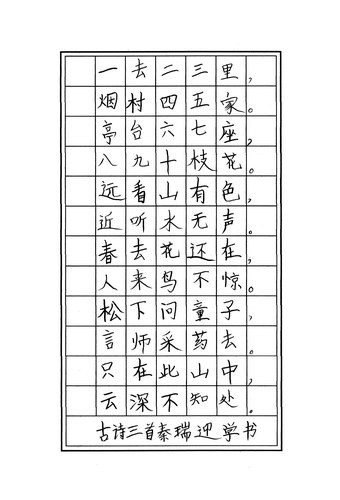 一去二三里，
烟村四五家。
亭台六七座，
八九十枝花。
远看山有色，
近听水无声。
春去花还在，
人来鸟不惊。
松下问童子，
言师采药去。
只在此山中，
云深不知处。
古诗三首秦瑞迎学书